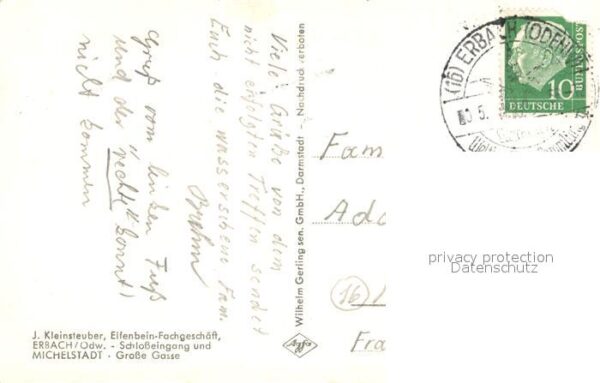 Viele Grüße von dem
nicht erfolgten Treffen sendet
Euch die wasserscheue Fam.
Gruß vom linken Fuß
und der "rechte" konnt'
nicht kommen
J. Kleinsteuber, Elfenbein-Fachgeschäft,
ERBACH/Odw. - Schloßeingang und
MICHELSTADT - Große Gasse
Wilhelm Gerling sen. GmbH., Darmstadt - Nachdruck verboten
Agfa
(16) ERBACH (ODENW
5.
10
DEUTSCHE
BUNDESPOST
Fam
Ado
16
Fra
privacy protection
Datenschutz